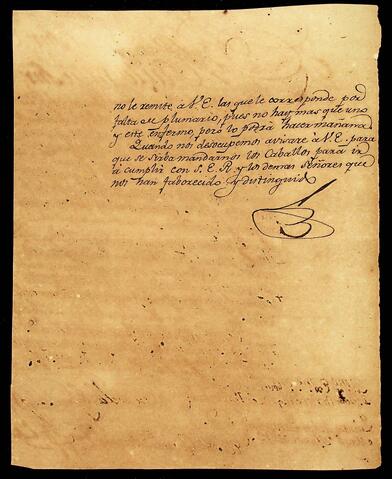 no le remite à V.E. las que le corresponde por
falta de plumario, pues no hay mas que uno
y este enfermo, pero lo podrà hacer mañana.
Quando nos desocupemos avisare à V.E. para
que se sirba mandarnos los Caballos para ir
à cumplir con S.E.R. y los demas Señores que
nos han faborecido y distinguid